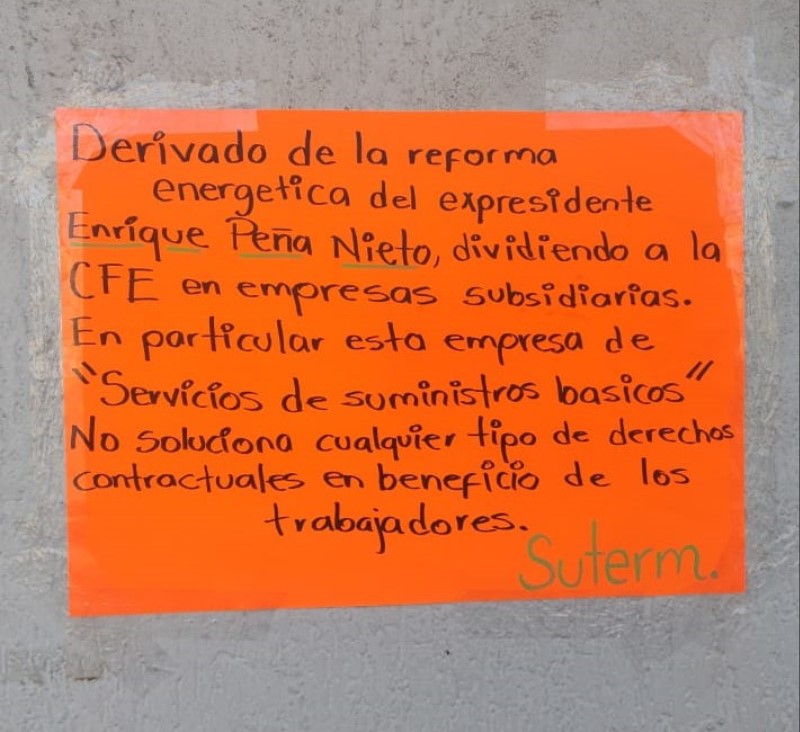 Derivado de la reforma
energetica del expresidente
Enrique Peña Nieto, dividiendo a la
CFE en empresas subsidiarias.
En particular esta empresa de
"Servicios de suministros basicos"
No soluciona cualquier tipo de derechos
contractuales en beneficio de los
trabajadores.
Suterm.